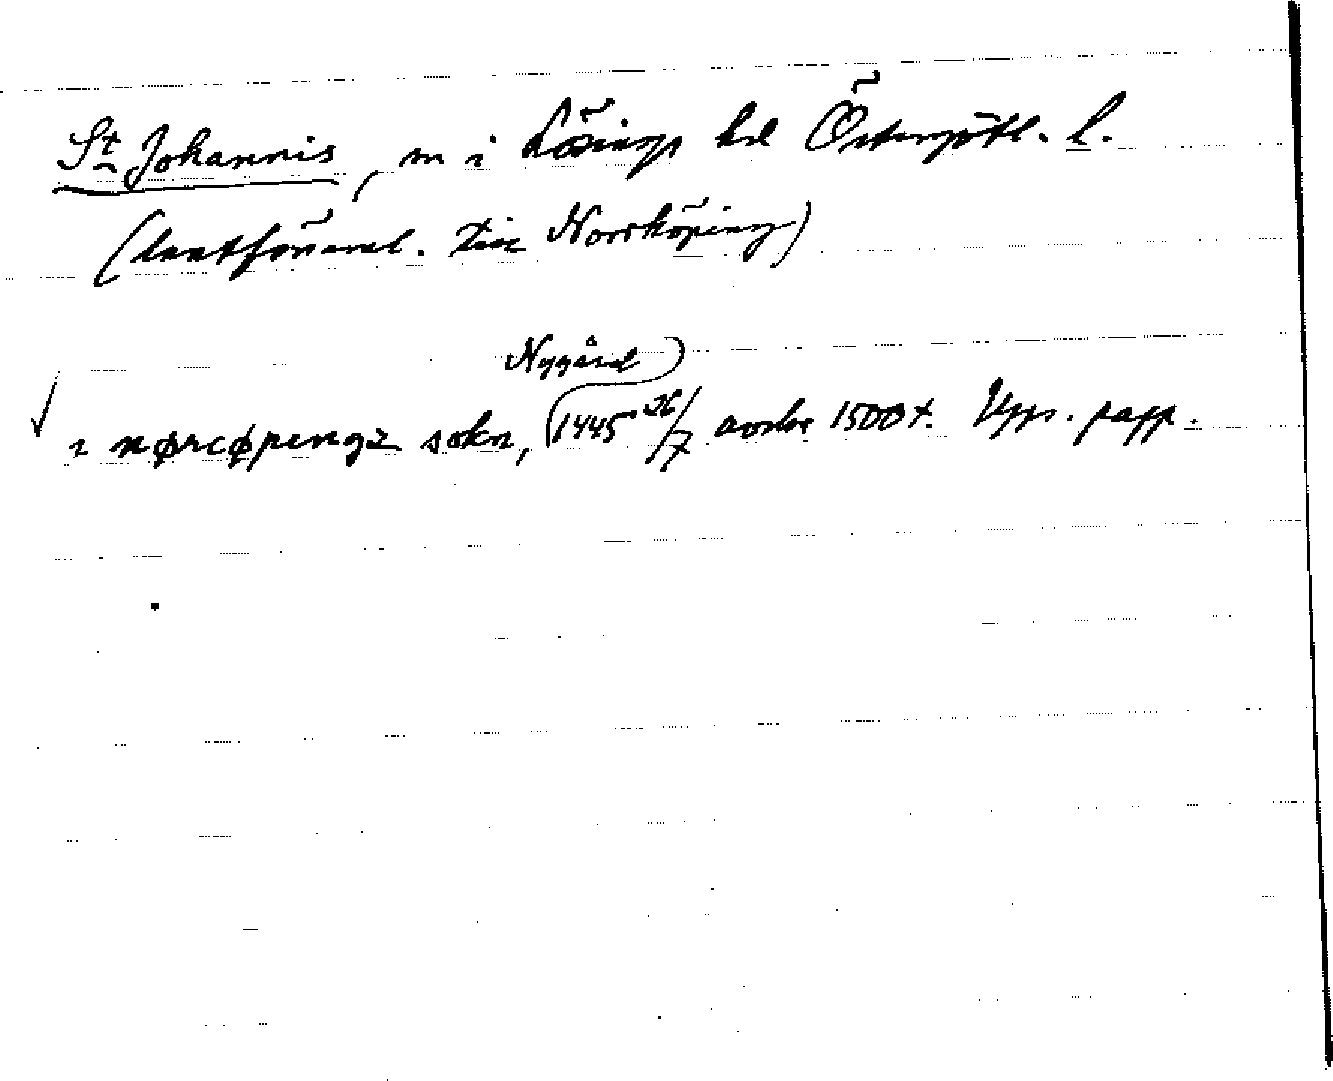 St Johannis, sn i Lösings hd Östergötl. l.
(lantförsaml. till Norrköping)
Nygård
i nørcøpunga sokn, 1445 26/7 avskr 1500 t. Upps. papp.